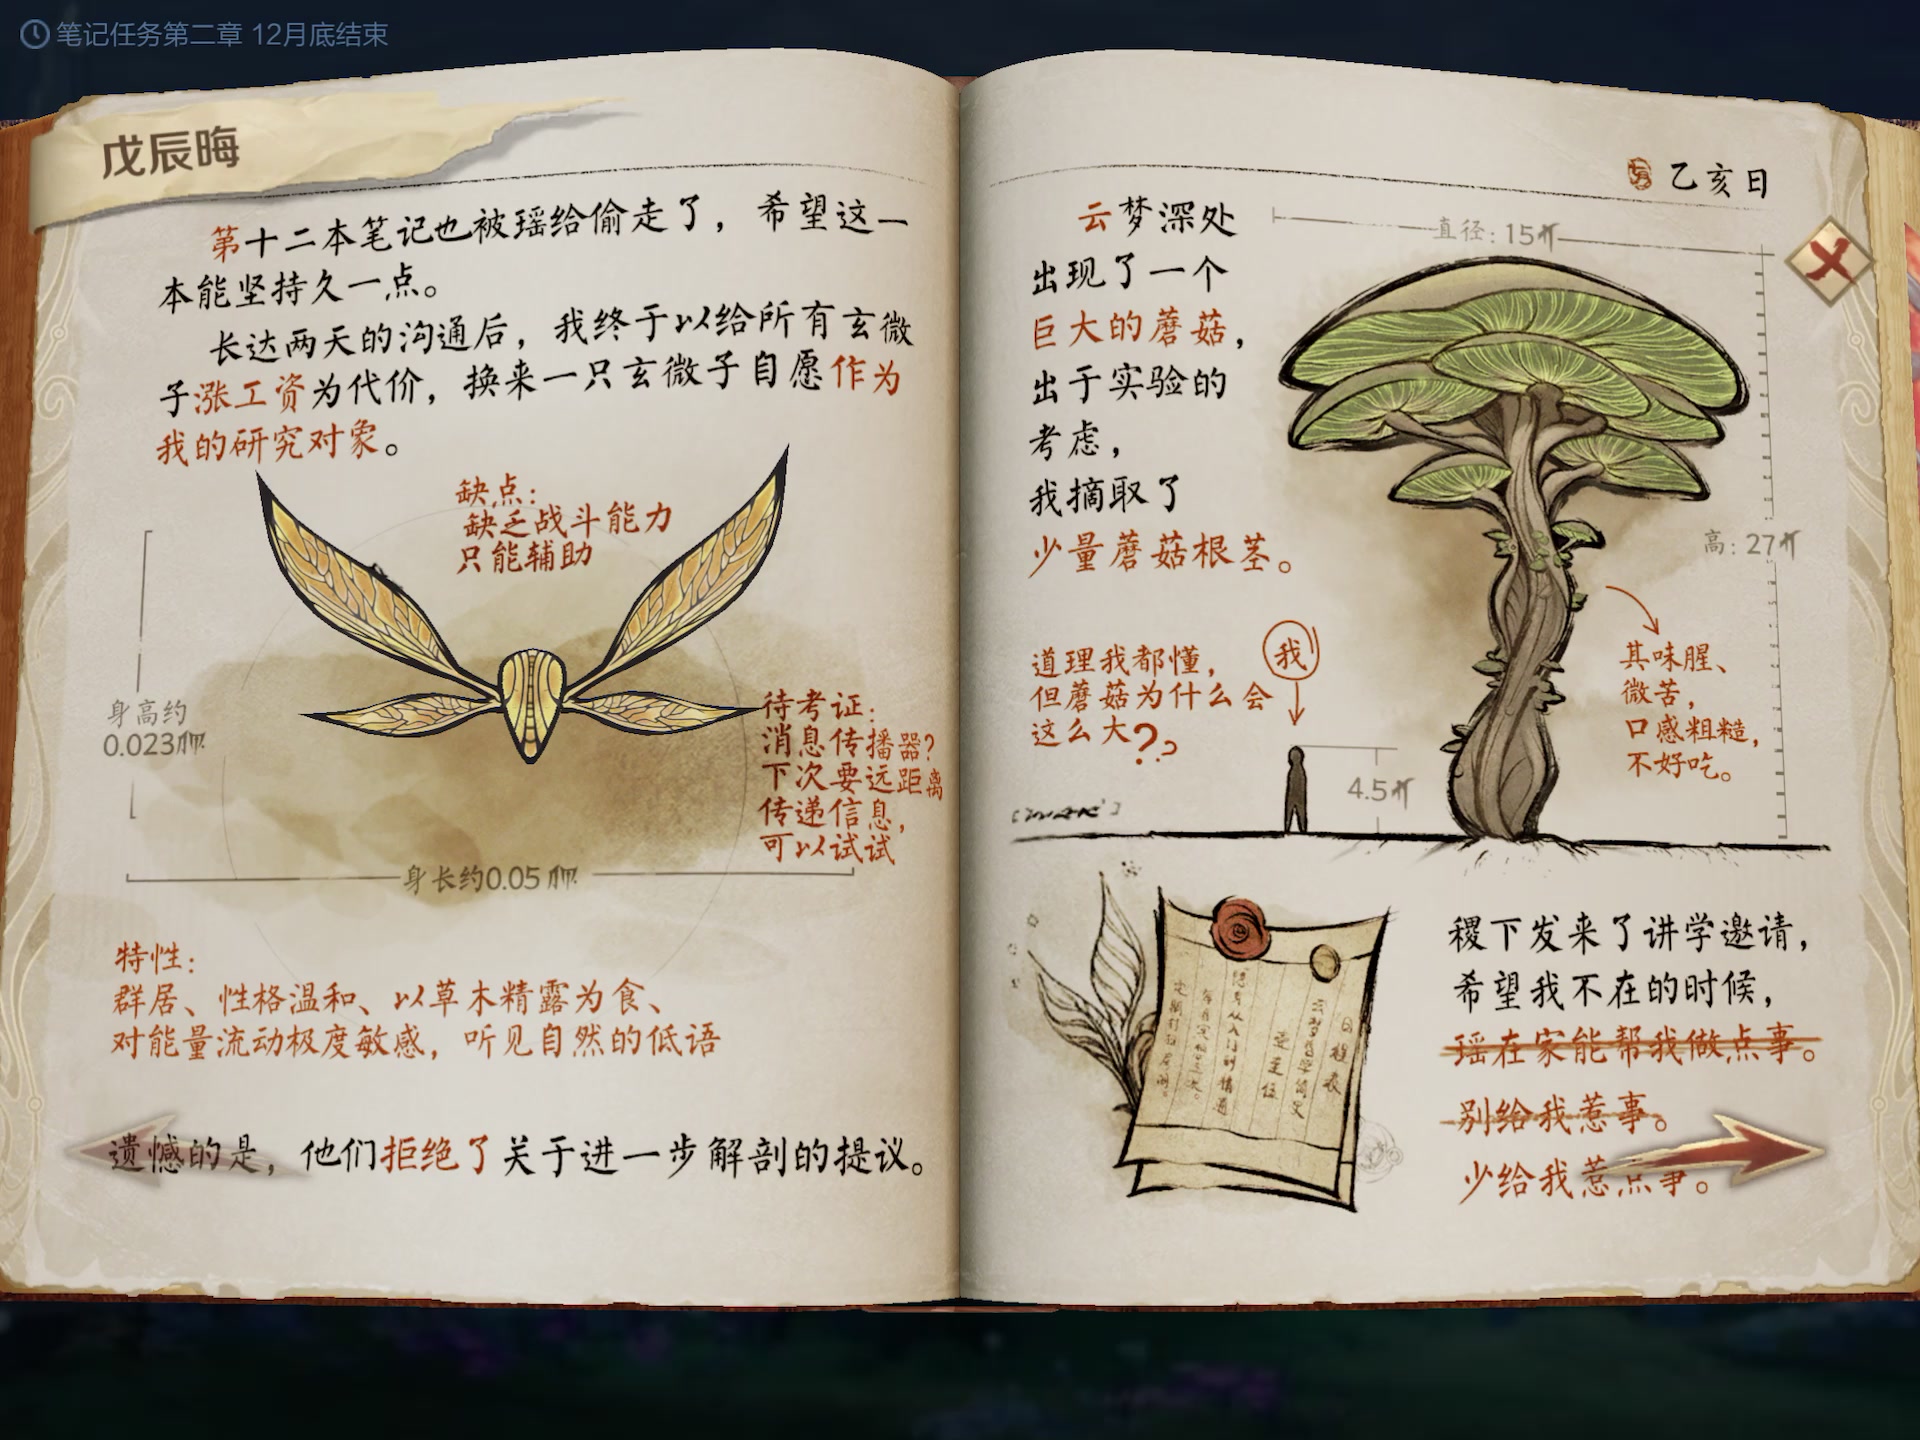 笔记任务第二章 12月底结束
戊辰晦
第十二本笔记也被瑶给偷走了，希望这一
本能坚持久一点。
长达两天的沟通后，我终于以给所有玄微
子涨工资为代价，换来一只玄微子自愿作为
我的研究对象。
缺点：
缺乏战斗能力
只能辅助
身高约
0.023
待考证：
消息传播器？
下次要远距离
传递信息，
可以试试
身长约0.05
特性：
群居、性格温和、以草木精露为食、
对能量流动极度敏感，听见自然的低语
遗憾的是，他们拒绝了关于进一步解剖的提议。
乙亥日
云梦深处
出现了一个
巨大的蘑菇，
出于实验的
考虑，
我摘取了
少量蘑菇根茎。
直径：15
高：27
道理我都懂，
但蘑菇为什么会
这么大？？
我
4.5
其味腥、
微苦，
口感粗糙，
不好吃。
日程表
稷下发来了讲学邀请，
希望我不在的时候，
瑶在家能帮我做点事。
别给我惹事。
少给我惹点事。